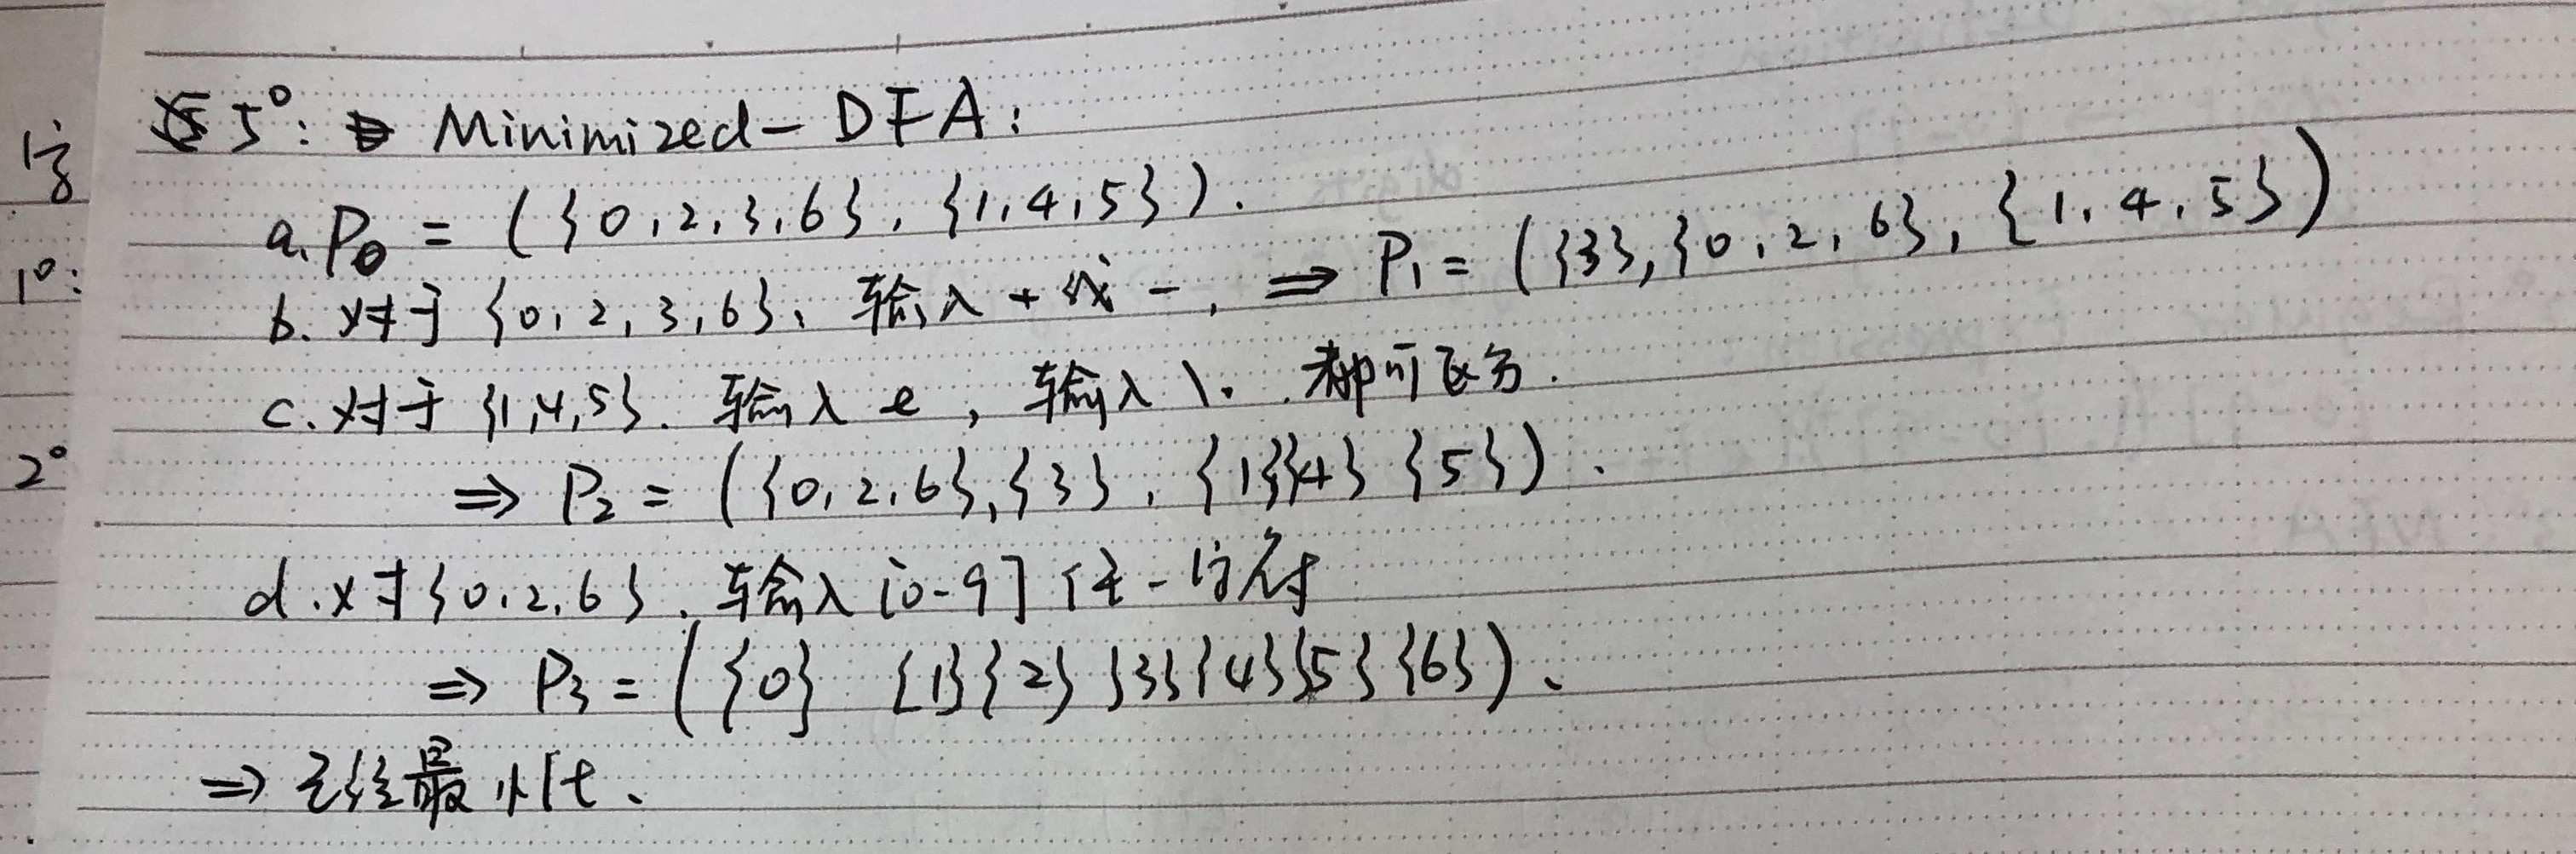 5°: Minimized-DFA:
a. P₀ = ({0,2,3,6}, {1,4,5}).
b. 对于 {0,2,3,6}、输入 + 或 -, ⇒ P₁ = ({3},{0,2,6},{1,4,5})
c. 对于 {1,4,5}. 输入 e, 输入 \. 都可区分.
⇒ P₂ = ({0,2,6},{3},{1}{4}{5}).
d. 对{0,2,6}、输入[0-9]任一符号
⇒ P₃ = ({0} {1}{2}{3}{4}{5}{6})、
⇒ 已经最小化、
1°:
2°